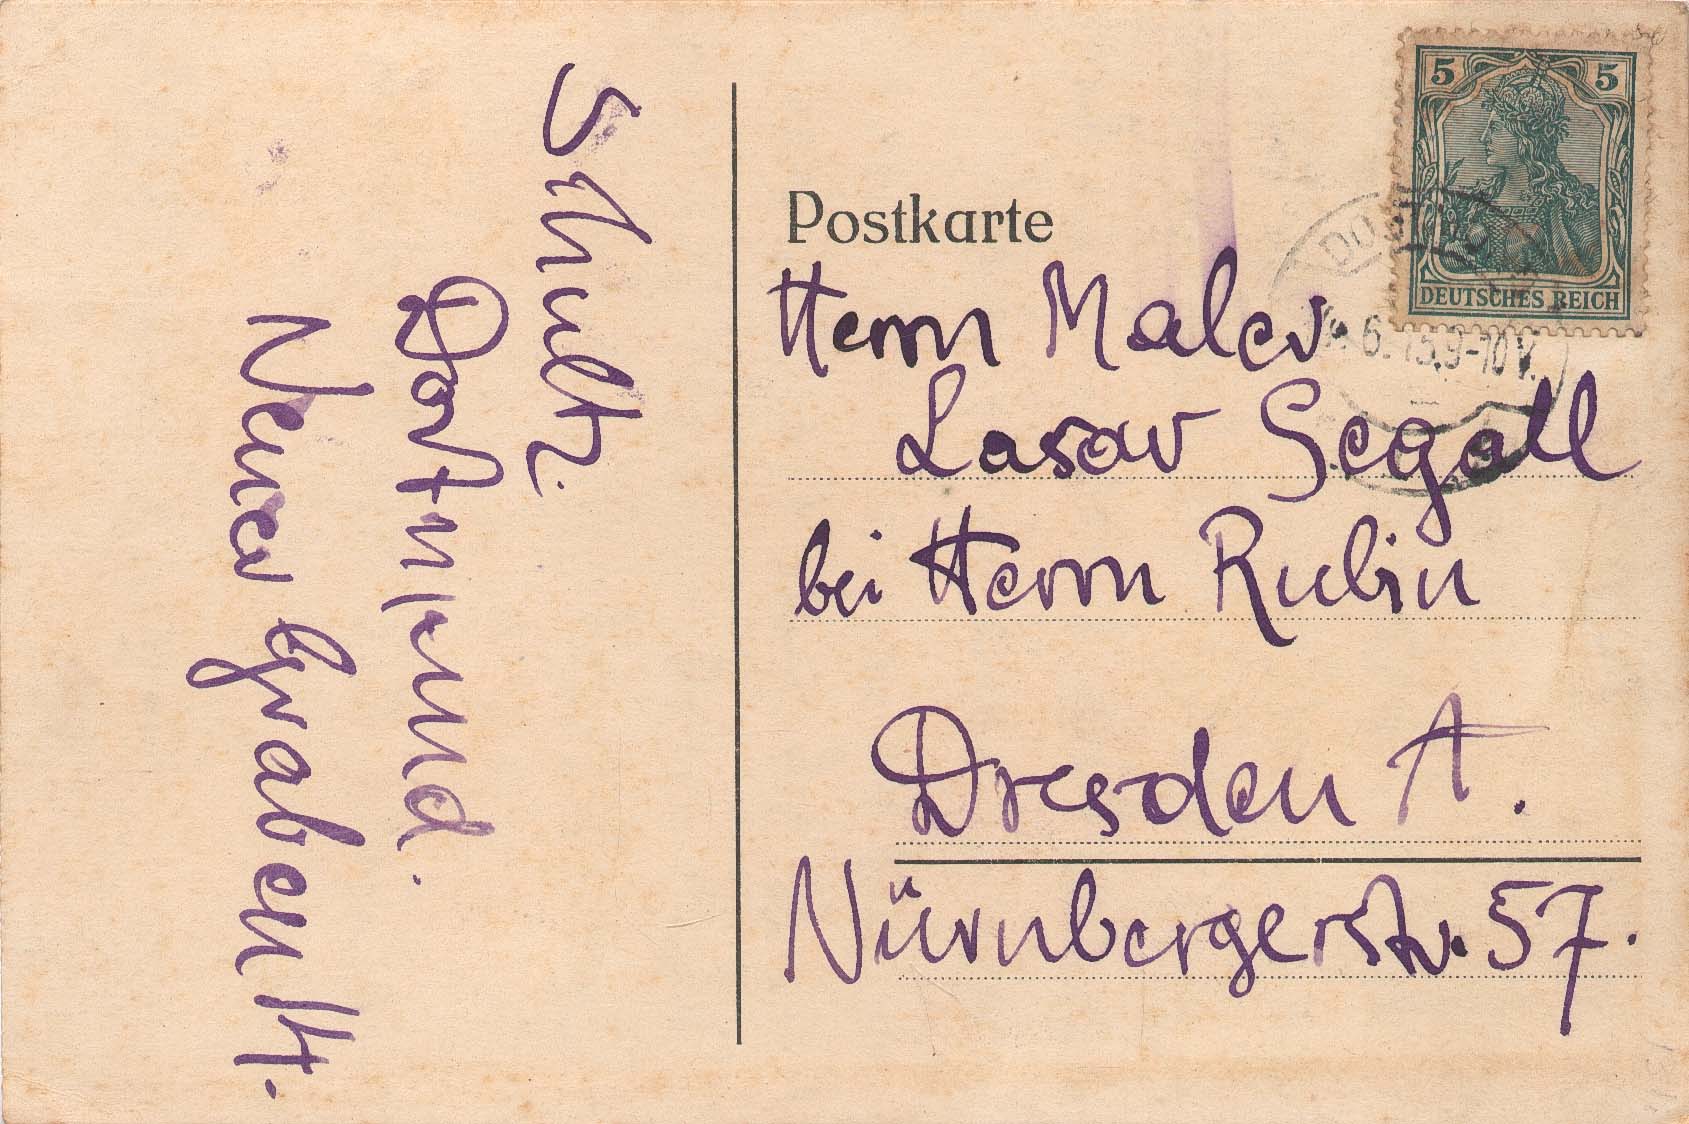 Schultz.
Dortmund.
Neuer Graben
Postkarte
Herrn Maler
Lasar Segall
bei Herrn Rubin
Dresden A.
Nürnbergerstr. 57.
5 5
DEUTSCHES REICH
6.15.9-10V.